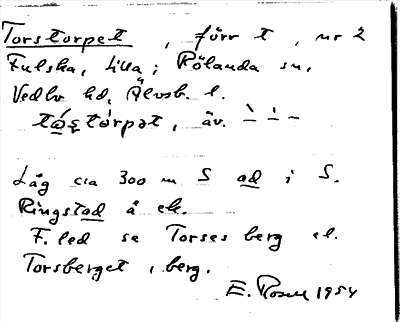 Torstorpet, förr t, nr 2
Fulska, Lilla; Rölanda sn,
Vedbo hd, Älvsb. l.
tɷştòrpət, äv. – ̀ – ̇ –
Låg cia 300 m S ad i S.
Ringstad å ek.
F. led se Torses berg el.
Torsberget, berg.
E. Rosell 1954